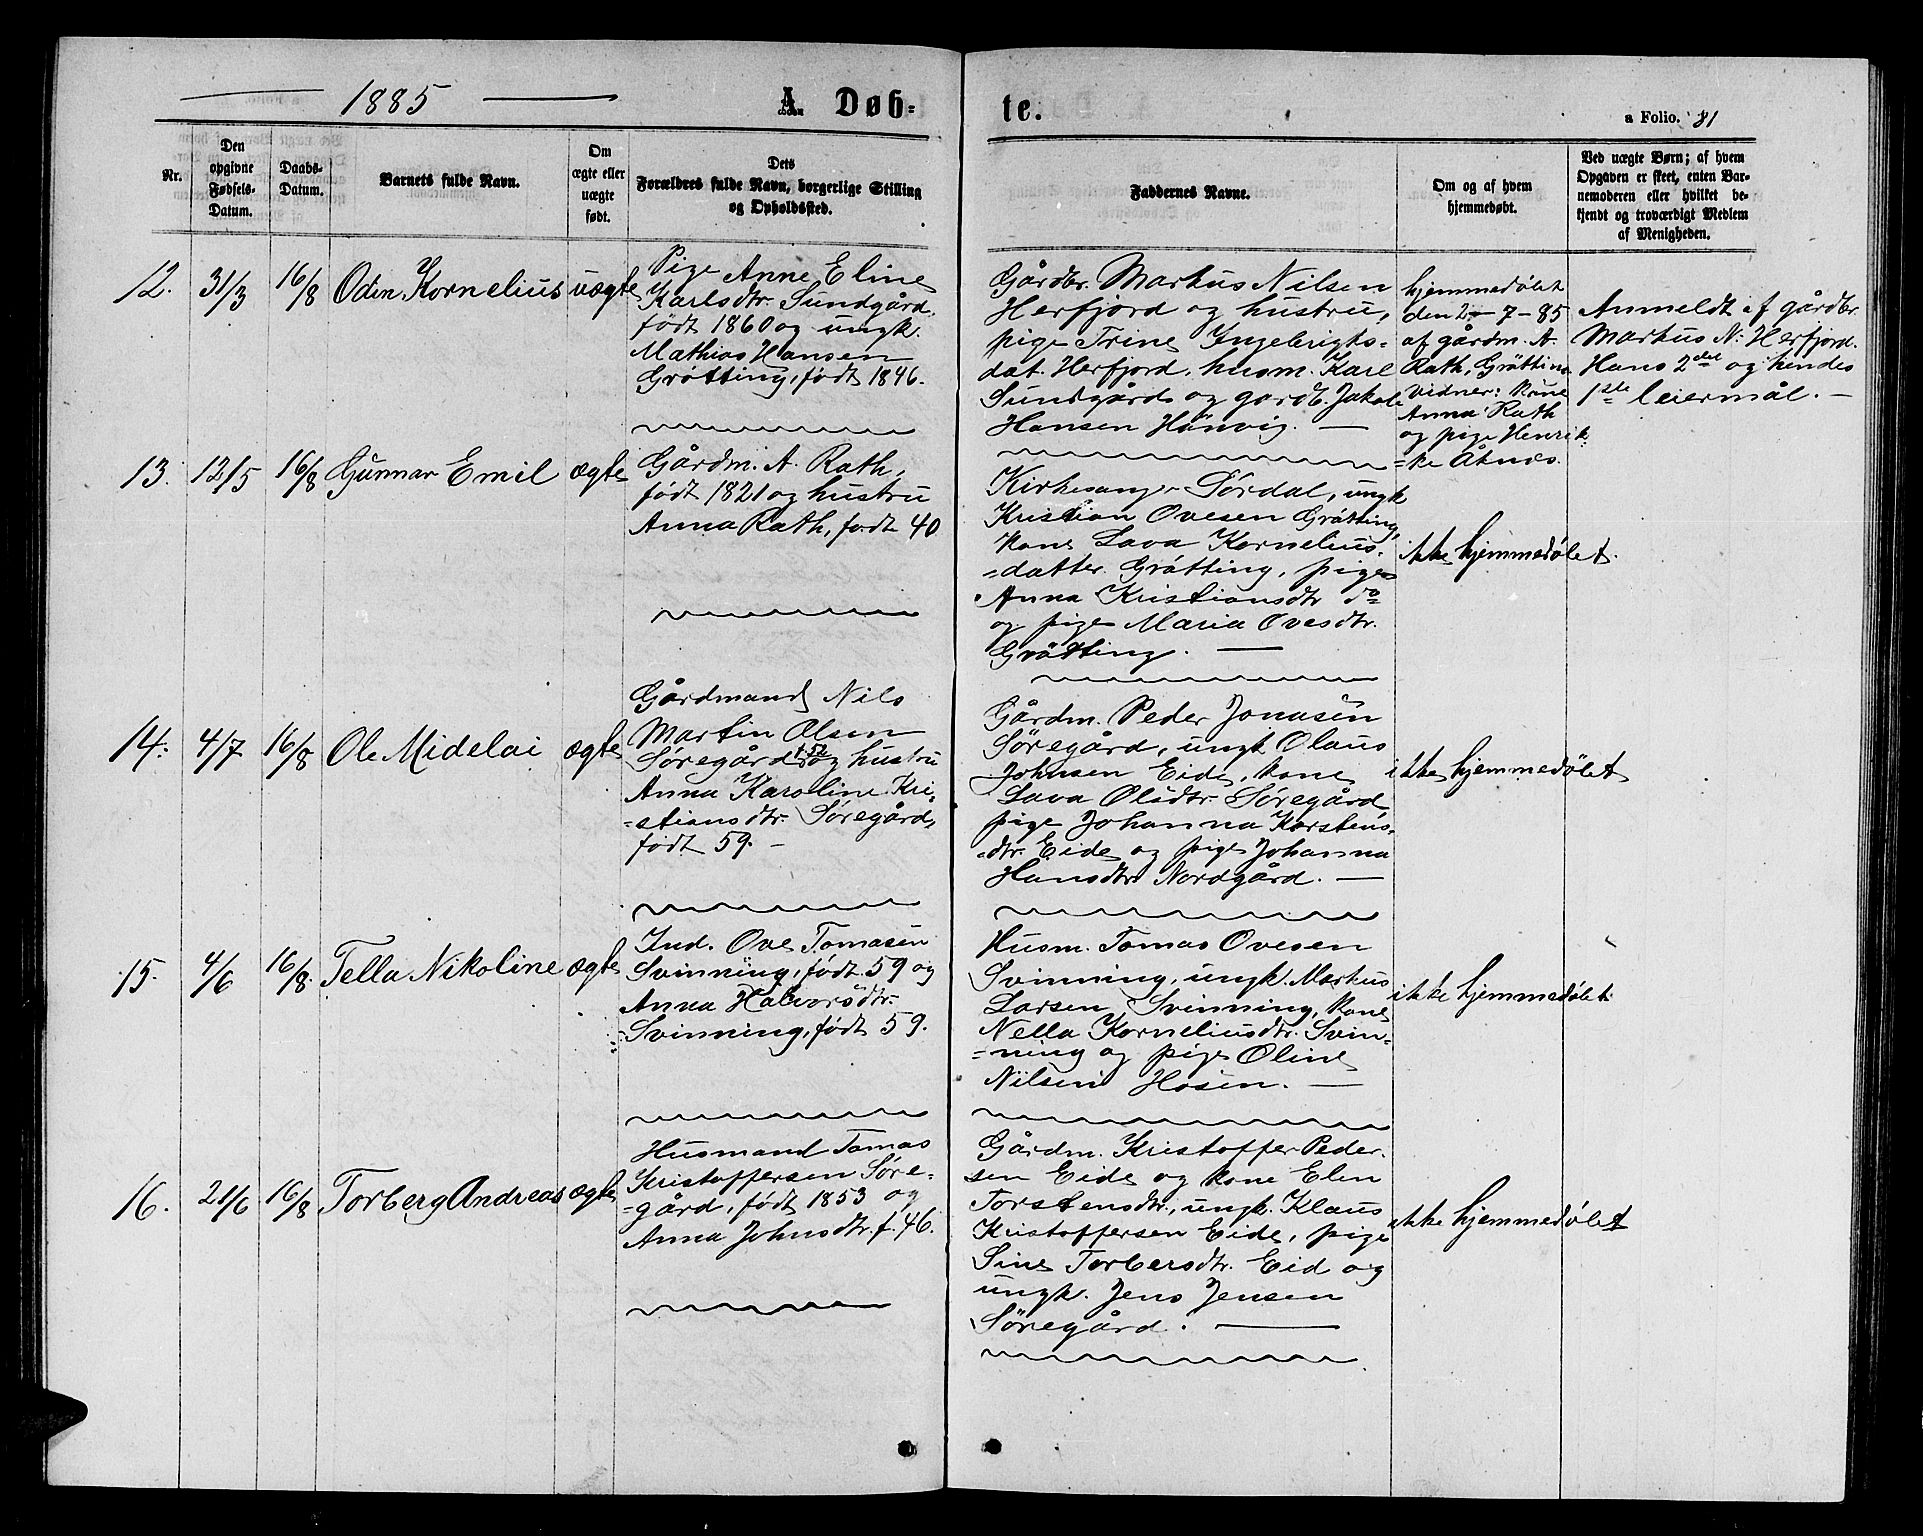 1885
A. Døb-
te.
a Folio. 81
Nr.
Den
opgivne
Fødsels-
Datum.
Daabs-
Datum.
Barnets fulde Navn.
Om
ægte eller
uægte
født.
Dets
Forældres fulde Navn, borgerlige Stilling
og Opholdssted.
Faddernes Navne.
Om og af hvem
hjemmedøbt.
Ved uægte Børn; af hvem
Opgaven er skeet, enten Bar-
nemoderen eller hvilket be-
kjendt og troværdigt Medlem
af Menigheden.
12. 31/3 16/8 Oden Kornelius uægte
Pige Anne Eline
Karlsdtr. Sundgård,
født 1860 og ungk.
Mathias Hansen
Gråtting, født 1846.
Gårdbr. Markus Nilsen
Herfjord og hustru,
pige Trine Ingebrigts-
dat. Herfjord, husm. Karl
Sundgård og gardb. Jakob
Hansen Hänvig. —
hjemmedøbt
den 2-7-85
af gårdm. A.
Rath, Gråtting
Vidner: Kone
Anna Rath
og pige Henrik-
=ke Åknes.
Anmeldt af gårdbr.
Markus N. Herfjord.
Hans 2det og hendes
1ste leiermål. —
13. 12/5 16/8 Gunnar Emil ægte
Gårdm. A. Rath,
født 1821 og hustru
Anna Rath, født 40
Kirkesanger Sørdal, ungk
Kristian Ovesen Gråtting,
kone Lava Kornelius-
=datter Gråtting, pige
Anna Kristiansdtr do
og pige Maria Ovesdtr.
Gråtting. —
ikke hjemmedøbt.
14. 4/7 16/8 Ole Midelai ægte
Gårdmand Nils
Martin Olsen
Søregård f. 52 og hustru
Anna Karoline Kri-
=stiansdtr. Søregård,
født 59. —
Gårdm. Peder Jonasen
Søregård, ungk Olaus
Johnsen Eide, kone
Lava Olsdtr. Søregård
pige Johanna Karstens-
=dtr. Eide og pige Johanna
Hansdtr Nordgård. —
ikke hjemmedøbt
15. 4/6 16/8. Tella Nikoline ægte
Ind. Ove Tomasen
Svinning, født 59 og
Anna Halvorsdtr.
Svinning, født 59.
Husm. Tomas Ovesen
Svinning, ungk. Markus
Larsen Svinning, kone
Nella Korneliusdtr. Svin-
=ning og pige Oline
Nilsen Hosen. —
ikke hjemmedøbt.
16. 21/6 16/8 Torberg Andreas ægte
Husmand Tomas
Kristoffersen Søre-
=gård, født 1853 og
Anna Johnsdtr. f. 46.
Gårdm. Kristoffer Peder-
sen Eide og kone Elen
Torstensdtr., ungk. Klaus
Kristoffersen Eide, pige
Sine Torbersdtr. Eid og
ungk. Jens Jensen
Søregård. —
ikke hjemmedøbt